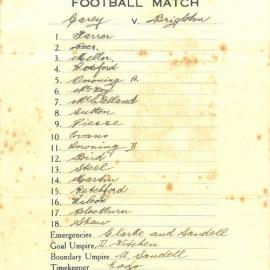 FOOTBALL MATCH
Carey V. Brighton
1 Farrer
2 Rees
3 Mellor
4 Watsford
5 Downing A.
6 McKay
7 McClelland
8 Sutton
9 Piesse
10 Evans
11 Downing D
12 Bird
13 Steel
14 Martin
15 Retchford
16 Wilcox
17 Blackburn
18. Shaw
Emergencies Clarke and Sandell
Goal Umpire, D. Kitchen
Boundary Umpire A. Sandell
Timekeeper Eady